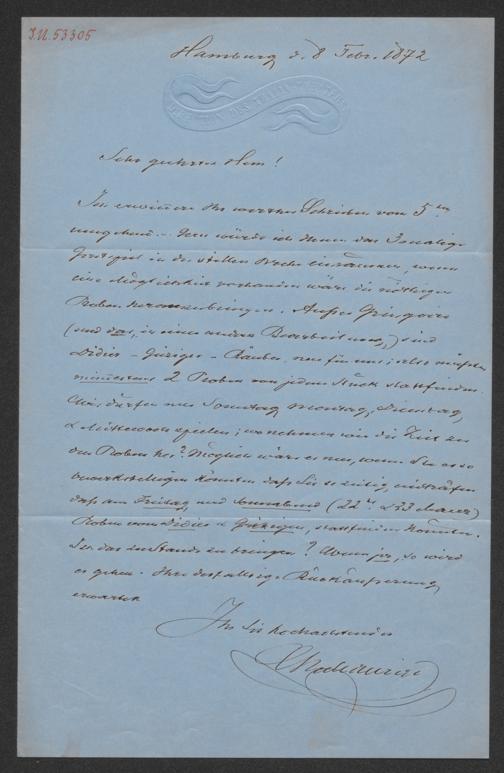 I.N. 53305
Hamburg d. 8 Febr. 1872
DIRECTION DES THALIA THEATERS
Sehr geehrter Herr!
Ich erwidere Ihr werthes Schreiben vom 5ten
umgehend. - Gern würde ich Ihnen das 3malige
Gastspiel in der stillen Woche einräumen, wenn
eine Möglichkeit vorhanden wäre die nöthigen
Proben herauszubringen. Außer Gringoire
(und das, in einer andren Bearbeitung,) sind
Didier - Geiziger - Räuber, neu für uns; also müßten
mindestens 2 Proben von jedem Stück stattfinden.
Wir dürfen nur Sonntag, Montag, Dienstag,
& Mittwoch spielen; wo nehmen wir die Zeit zu
den Proben her? Möglich wäre es nur, wenn Sie es so
bewerkstelligen könnten daß Sie so zeitig einträfen
daß am Freitag und Sonnabend (22t & 23 März)
Proben von Didier & Geizigen, stattfinden könnten.
Ist das zu Stande zu bringen? Wenn ja, so wird
es gehen. Ihre desfallsige Rückäußerung
erwartet
Ihr Sie hochachtender